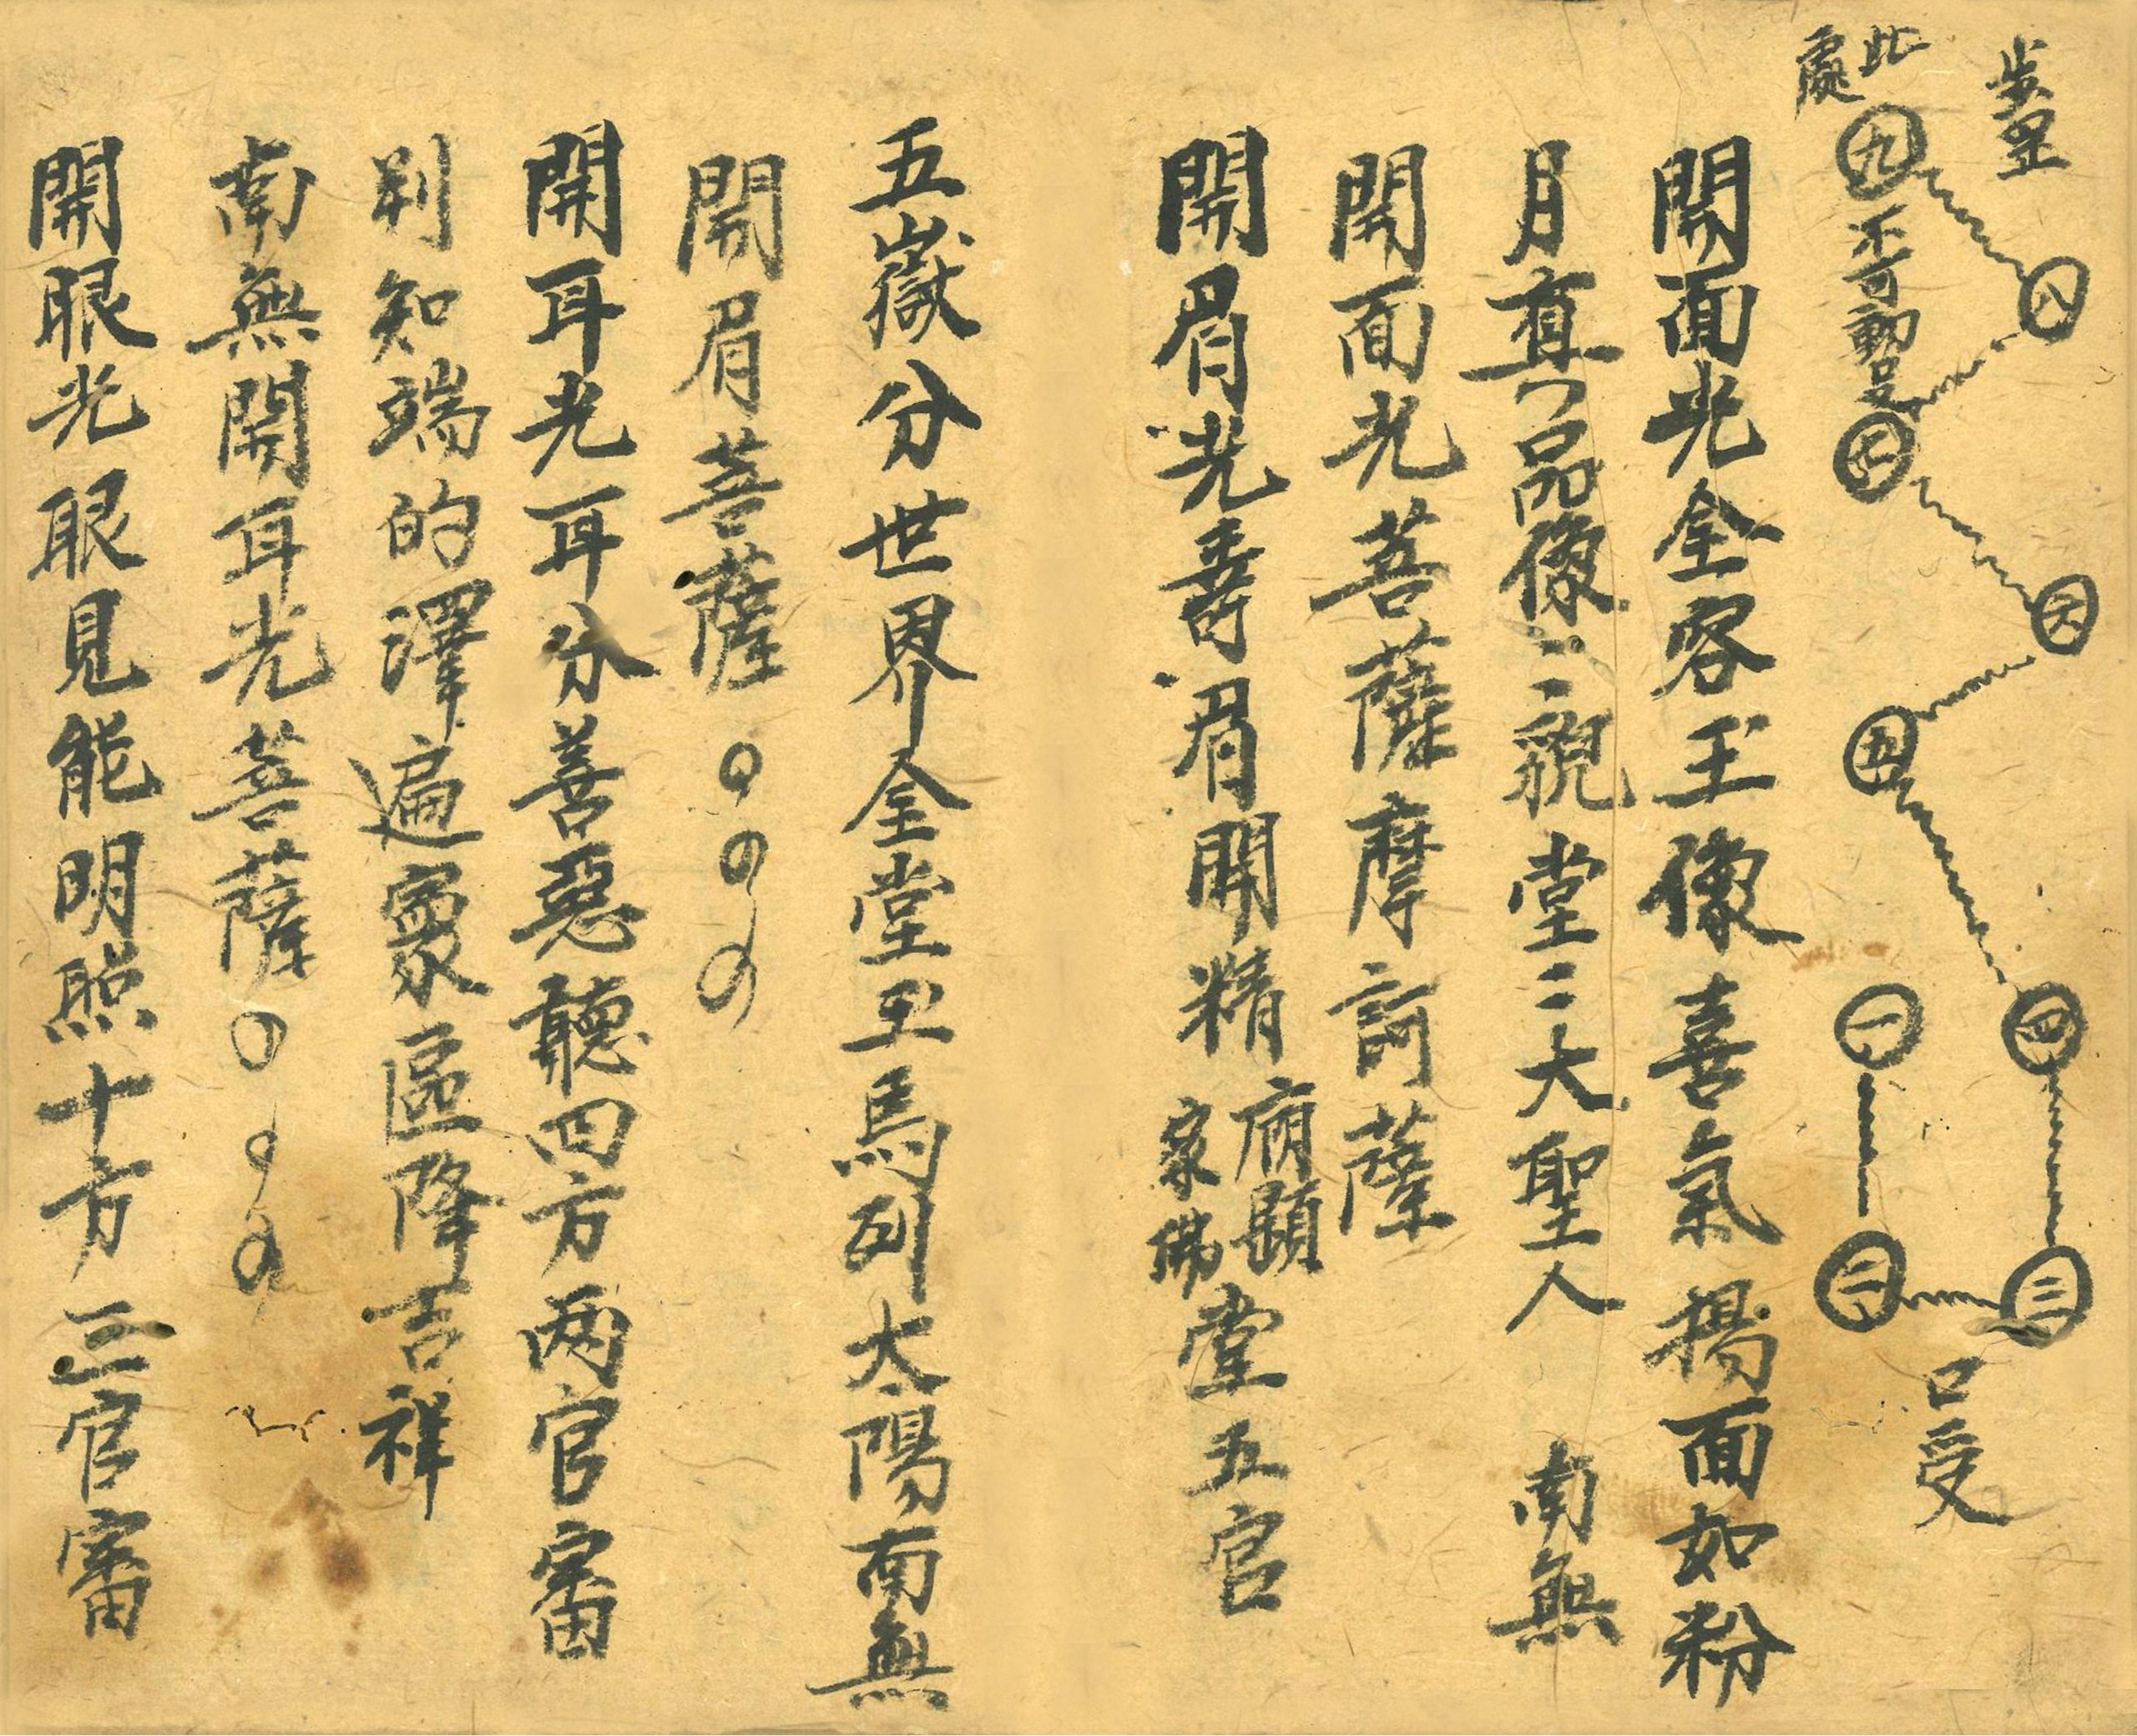 步罡
此處
九
不可動足
八
七
六
五
四
一
三
二
口受
開面光全容玉像喜氣揚面如粉
月真品像ニニ親堂ニ大聖人 南無
開面光菩薩摩訶薩
開眉光壽眉開精廟顕家佛堂五官
五嶽分世界全堂玉馬列太陽南無
開眉菩薩
開耳光耳分善惡聽四方两官審
判知端的澤遍寰區降吉祥
南無開耳光菩薩
開眼光眼見能明照十方三官審